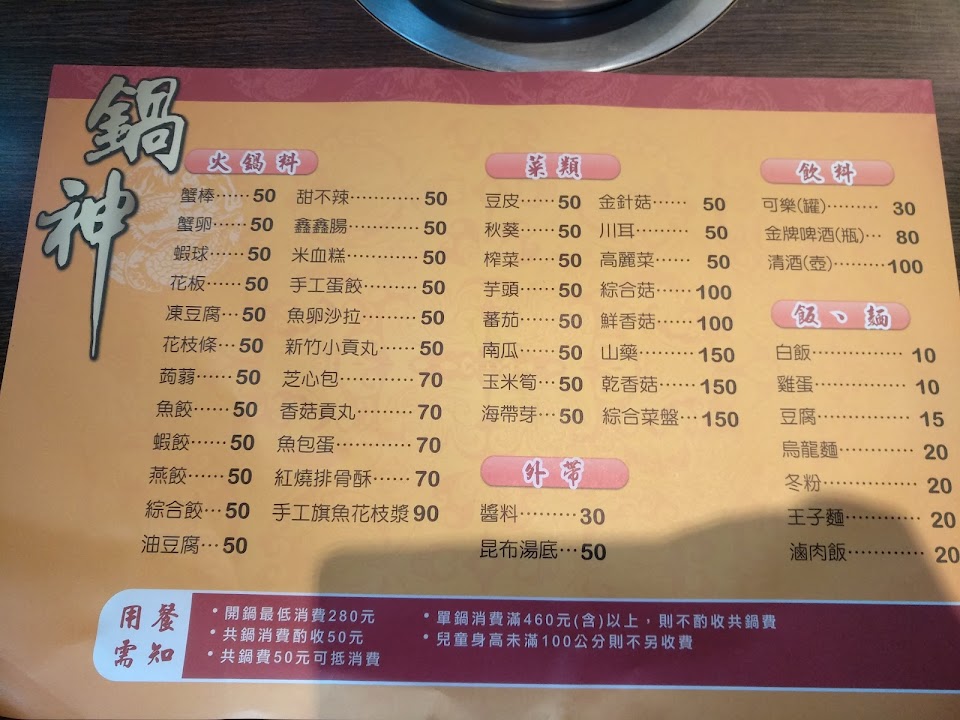 鍋神
火鍋料
蟹棒……50 甜不辣…………50
蟹卵……50 鑫鑫腸…………50
蝦球……50 米血糕…………50
花板……50 手工蛋餃………50
凍豆腐…50 魚卵沙拉………50
花枝條…50 新竹小貢丸……50
蒟蒻……50 芝心包…………70
魚餃……50 香菇貢丸………70
蝦餃……50 魚包蛋…………70
燕餃……50 紅燒排骨酥……70
綜合餃…50 手工旗魚花枝漿90
油豆腐…50
菜類
豆皮……50 金針菇……50
秋葵……50 川耳………50
榨菜……50 高麗菜……50
芋頭……50 綜合菇……100
蕃茄……50 鮮香菇……100
南瓜……50 山藥………150
玉米筍…50 乾香菇……150
海帶芽…50 綜合菜盤…150
外帶
醬料………30
昆布湯底…50
飲料
可樂(罐)………30
金牌啤酒(瓶)…80
清酒(壺)………100
飯、麵
白飯…………10
雞蛋…………10
豆腐…………15
烏龍麵………20
冬粉…………20
王子麵………20
滷肉飯………20
用餐需知
•開鍋最低消費280元
•共鍋消費酌收50元
•共鍋費50元可抵消費
•單鍋消費滿460元(含)以上，則不酌收共鍋費
•兒童身高未滿100公分則不另收費